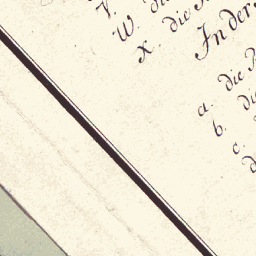 V.
W. die
X. die
In der
a. die
b. die
c.